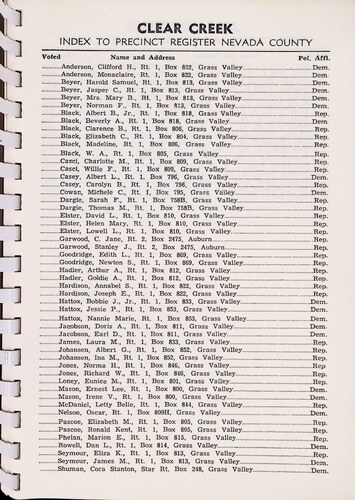 CLEAR CREEK
INDEX TO PRECINCT REGISTER NEVADA COUNTY
Voted Name and Address Pol. Affl.
Anderson, Clifford H., Rt. 1, Box 822, Grass Valley Dem.
Anderson, Monaclaire, Rt. 1, Box 822, Grass Valley Dem.
Beyer, Harold Samuel, Rt. 1, Box 813, Grass Valley Dem.
Beyer, Jasper C., Rt. 1, Box 813, Grass Valley Dem.
Beyer, Mrs. Mary B., Rt. 1, Box 813, Grass Valley Dem.
Beyer, Norman F., Rt. 1, Box 813, Grass Valley Rep.
Black, Albert B., Jr., Rt. 1, Box 818, Grass Valley Rep.
Black, Beverly A., Rt. 1, Box 818, Grass Valley Dem.
Black, Clarence B., Rt. 1, Box 806, Grass Valley Rep.
Black, Elizabeth C., Rt. 1, Box 804, Grass Valley Rep.
Black, Madeline, Rt. 1, Box 806, Grass Valley Rep.
Black, W. A., Rt. 1, Box 805, Grass Valley Rep.
Casci, Charlotte M., Rt. 1, Box 809, Grass Valley Rep.
Casci, Willie F., Rt. 1, Box 809, Grass Valley Rep.
Casey, Albert L., Rt. 1, Box 796, Grass Valley Dem.
Casey, Carolyn B., Rt. 1, Box 796, Grass Valley Rep.
Cowan, Michele C., Rt. 1, Box 795, Grass Valley Dem.
Dargie, Sarah F., Rt. 1, Box 758B, Grass Valley Rep.
Dargie, Thomas M., Rt. 1, Box 758B, Grass Valley Rep.
Elster, David L., Rt. 1, Box 810, Grass Valley Rep.
Elster, Helen Mary, Rt. 1, Box 810, Grass Valley Rep.
Elster, Lowell L., Rt. 1, Box 810, Grass Valley Rep.
Garwood, C. Jane, Rt. 2, Box 2475, Auburn Rep.
Garwood, Stanley J., Rt. 2, Box 2475, Auburn Rep.
Goodridge, Edith L., Rt. 1, Box 869, Grass Valley Rep.
Goodridge, Newton S., Rt. 1, Box 869, Grass Valley Rep.
Hadler, Arthur A., Rt. 1, Box 812, Grass Valley Rep.
Hadler, Goldie A., Rt. 1, Box 812, Grass Valley Rep.
Hardison, Annabel S., Rt. 1, Box 822, Grass Valley Rep.
Hardison, Joseph E., Rt. 1, Box 822, Grass Valley Rep.
Hattox, Bobbie J., Jr., Rt. 1, Box 853, Grass Valley Dem.
Hattox, Jessie P., Rt. 1, Box 853, Grass Valley Dem.
Hattox, Nannie Marie, Rt. 1, Box 853, Grass Valley Dem.
Jacobson, Doris A., Rt. 1, Box 811, Grass Valley Dem.
Jacobson, Earl D., Rt. 1, Box 811, Grass Valley Dem.
James, Laura M., Rt. 1, Box 833, Grass Valley Rep.
Johansen, Albert G., Rt. 1, Box 852, Grass Valley Rep.
Johansen, Isa M., Rt. 1, Box 852, Grass Valley Rep.
Jones, Norma H., Rt. 1, Box 846, Grass Valley Rep.
Jones, Richard W., Rt. 1, Box 846, Grass Valley Rep.
Loney, Eunice M., Rt. 1, Box 801, Grass Valley Rep.
Mason, Ernest Lee, Rt. 1, Box 800, Grass Valley Dem.
Mason, Irene V., Rt. 1, Box 800, Grass Valley Dem.
McDaniel, Letty Belle, Rt. 1, Box 844, Grass Valley Rep.
Nelson, Oscar, Rt. 1, Box 809H, Grass Valley Dem.
Pascoe, Elizabeth M., Rt. 1, Box 805, Grass Valley Rep.
Pascoe, Ronald Kent, Rt. 1, Box 805, Grass Valley Rep.
Phelan, Marion E., Rt. 1, Box 815, Grass Valley Rep.
Rowell, Dan L., Rt. 1, Box 814, Grass Valley Dem.
Seymour, Eliza K., Rt. 1, Box 813, Grass Valley Rep.
Seymour, James M., Rt. 1, Box 813, Grass Valley Dem.
Shuman, Cora Stanton, Star Rt. Box 248, Grass Valley Dem.